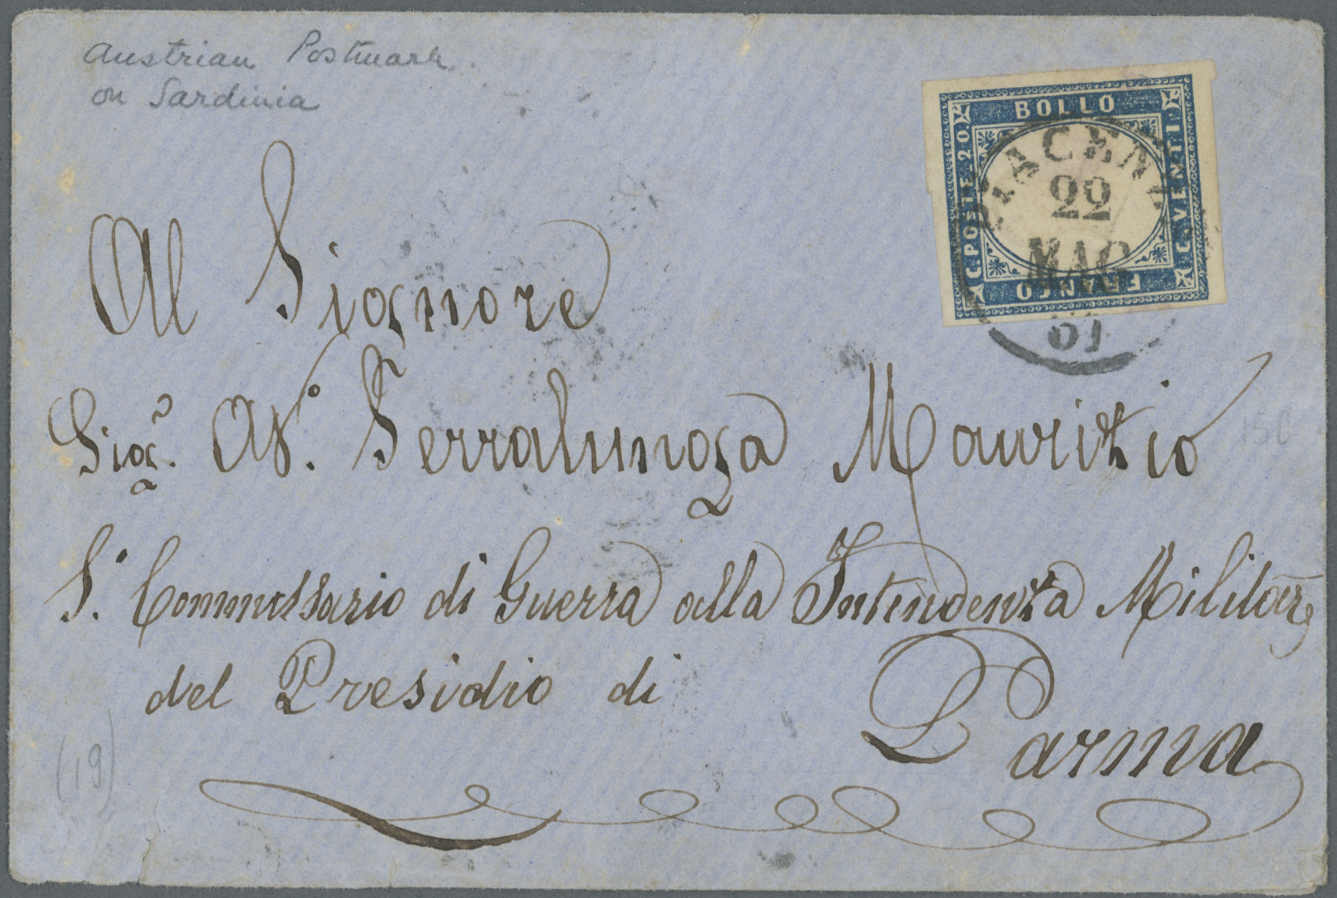 Austrian Postmark
on Sardinia
BOLLO
C. POSTE 20
C. VENTI
FRANCO
PIACENZA
22
MAG
61
Al Signore
Sigr. Av.o Serralunga Maurizio
S.o Commissario di Guerra alla Intendenza Militare
del Presidio di
Parma
150
(19)